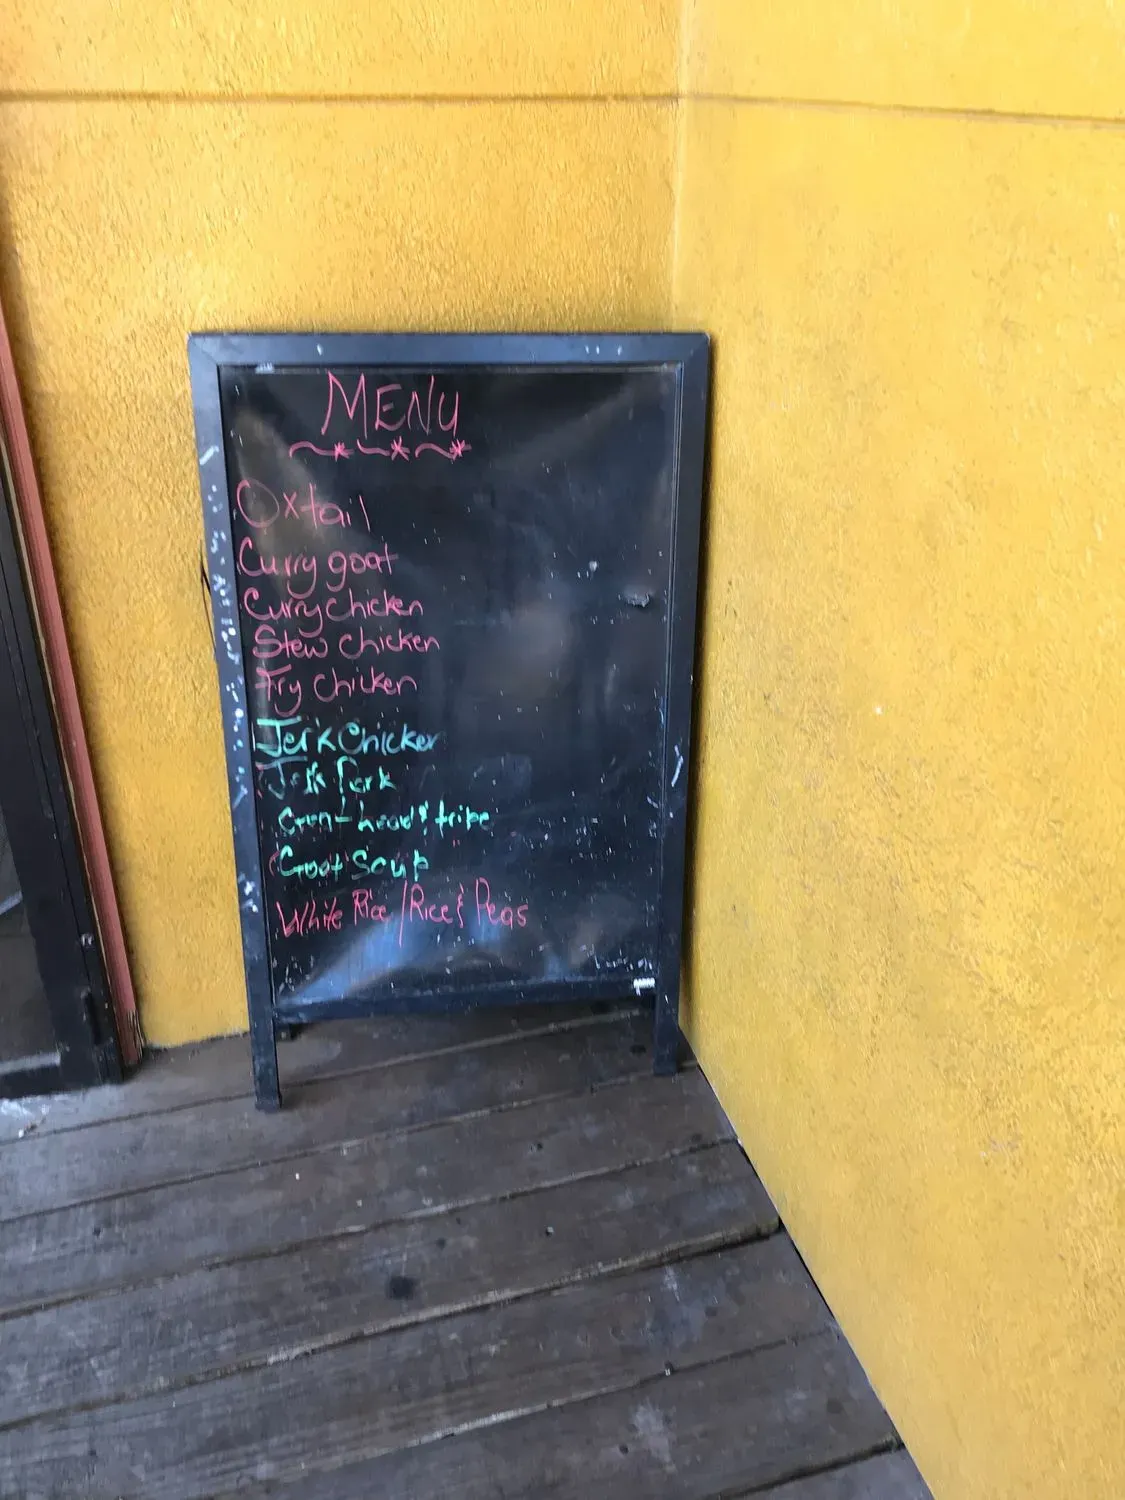 MENU
Oxtail
Curry goat
Curry chicken
Stew chicken
Fry chicken
Jerk Chicken
Jerk Pork
Goat head & tripe
Goat Soup
White Rice/Rice & Peas